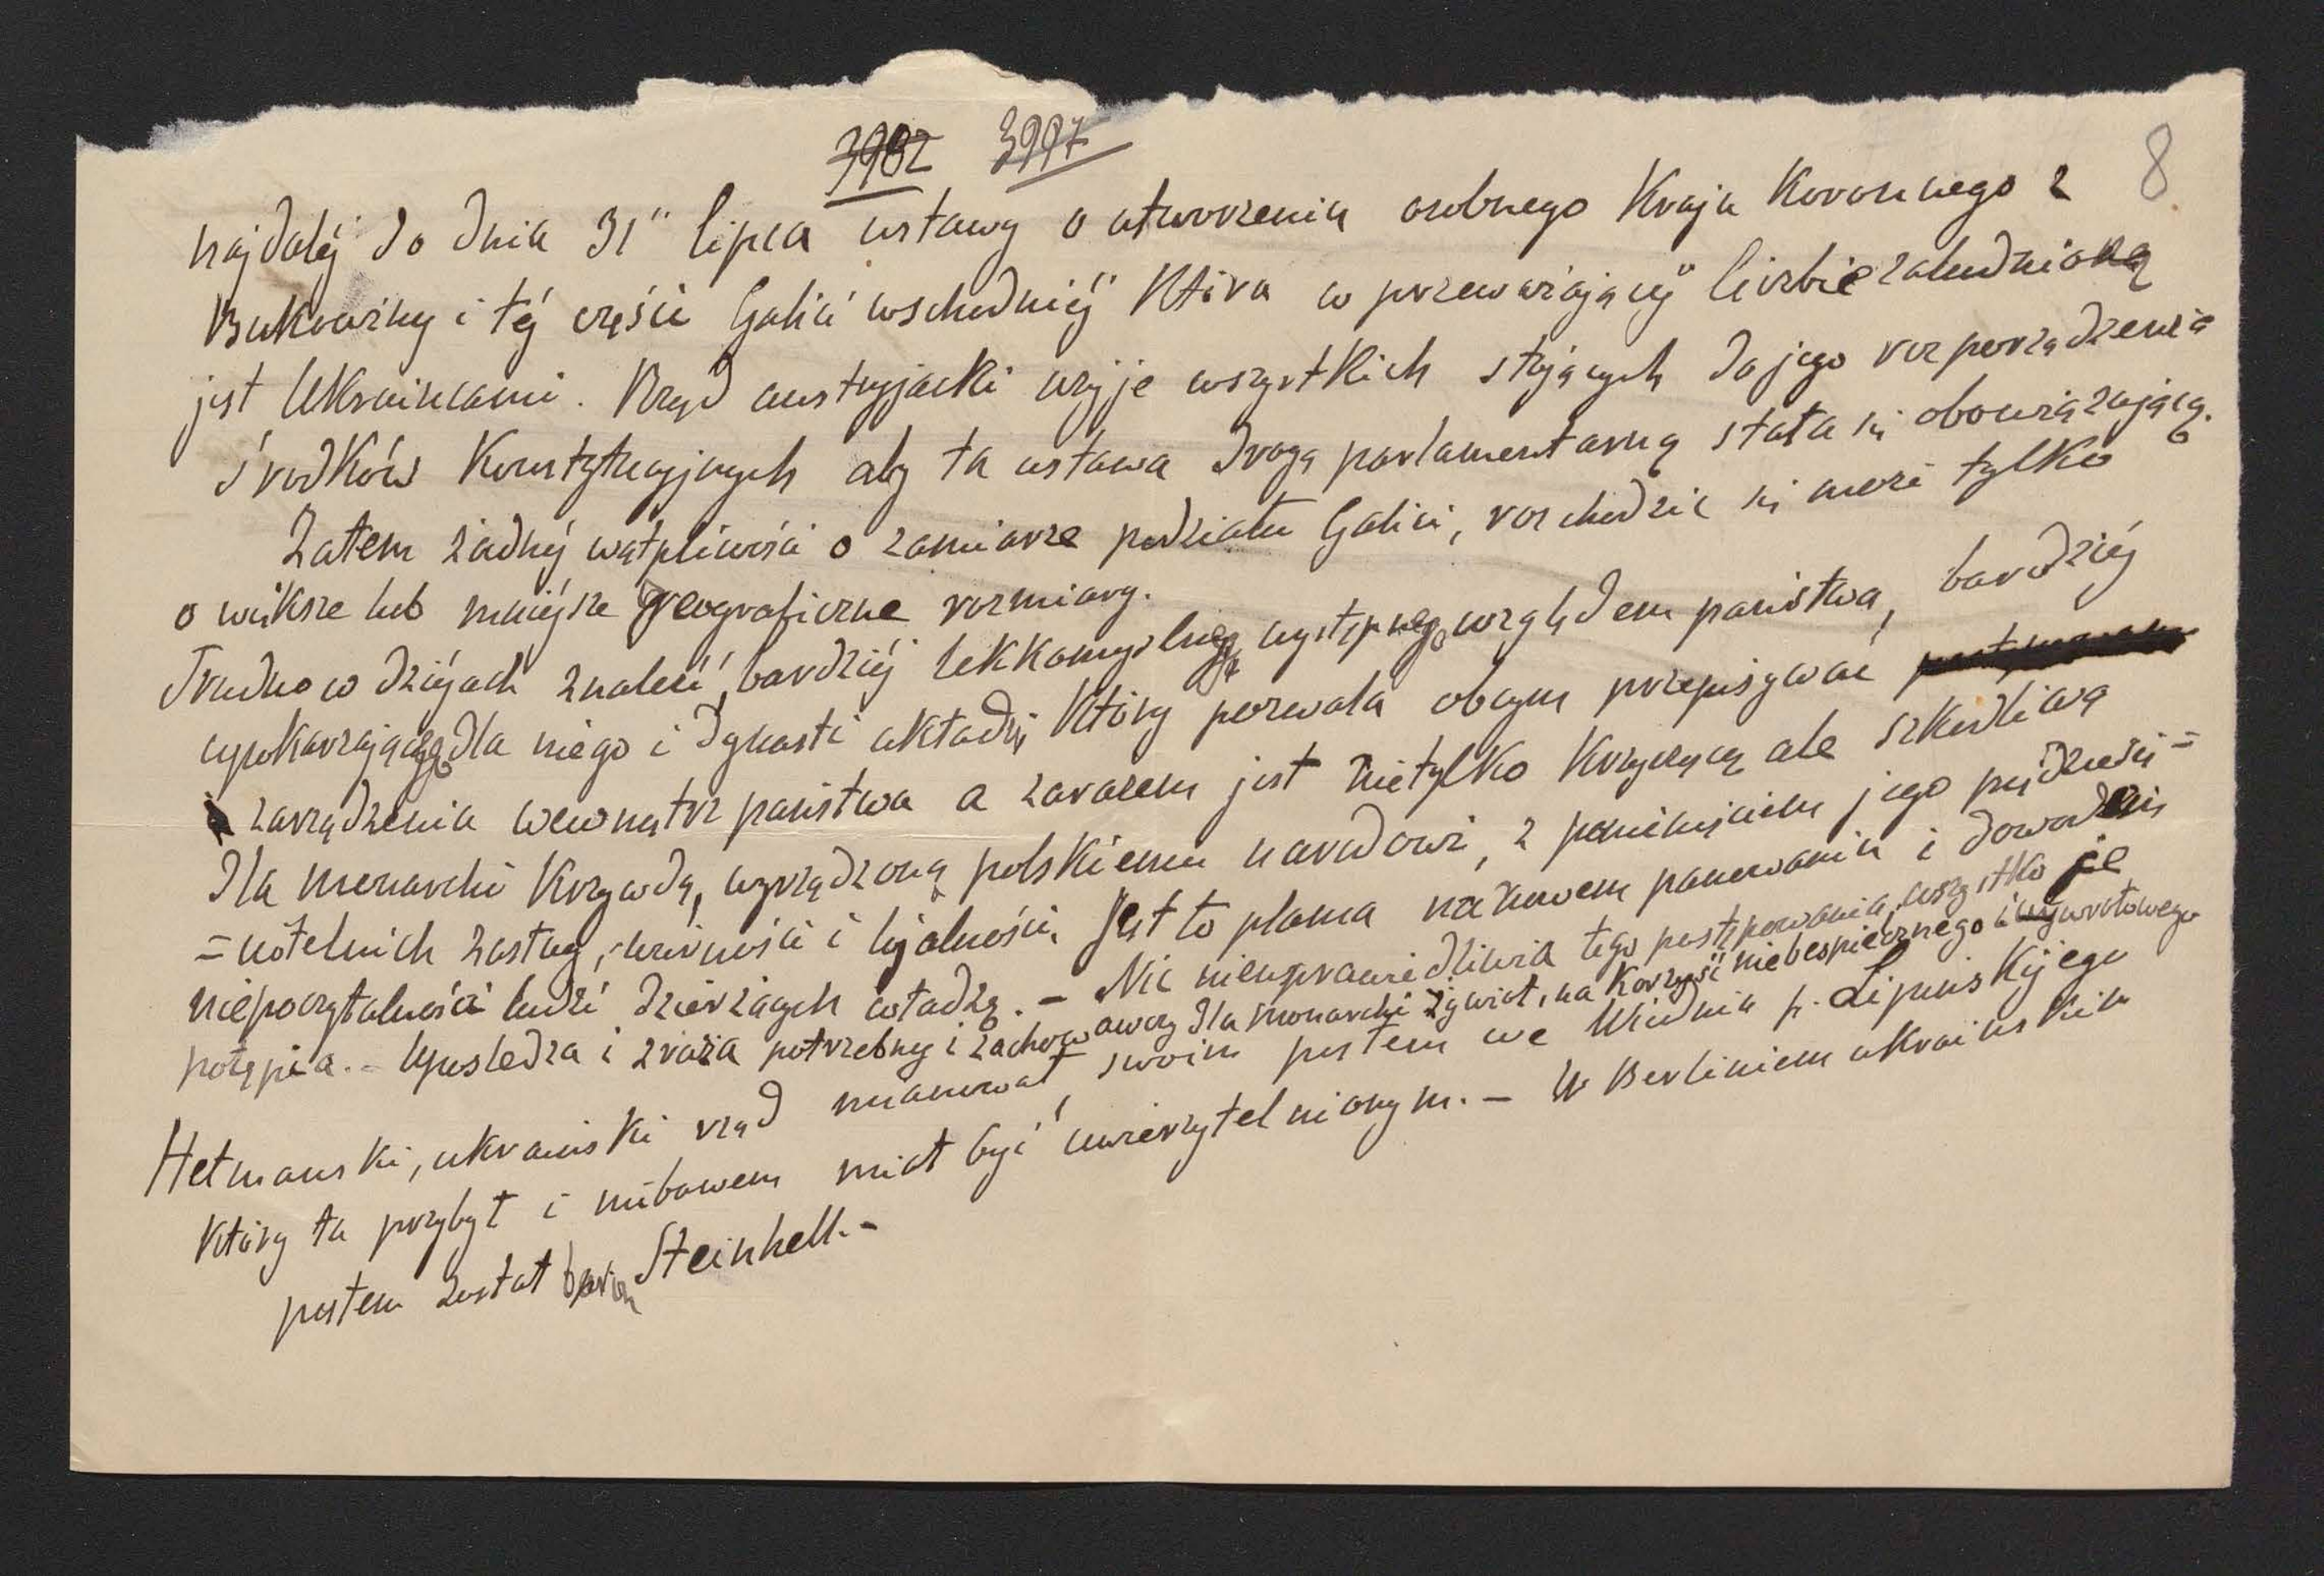 3982 3997
8
najdaléj do dnia 31" lipca ustawy o utworzeniu osobnego Kraju Koronnego z
Bukowiny i téj części Galicii wschodniéj Która w przeważającéj liczbie zaludnioną
jest Ukraińcami. Rząd austryjacki użyje wszystkich stojących do jego rozporządzenia
środków Konstytucyjnych aby ta ustawa drogą parlamentarną stała się obowiązującą.
Zatem żadnéj wątpliwości o zamiarze podziału Galicii, rozchodzić się może tylko
o większe lub mniéjsze geograficzne rozmiary.
Trudno w dziéjach znaleść bardziéj lekkomyślnego występnego względem państwa, bardziéj
upokarzającego dla niego i dynastii układu, Który pozwala obcym przepisywać
zarządzenia wewnątrz państwa a zarazem jest nietylko Krzyczącą ale szkodliwą
dla monarchii Krzywdą, wyrządzoną polskiemu narodowi, z pominięciem jego
zasług, i lojalności. Jest to plama na nowem panowaniu i dowodem
niepoczytalności ludzi dzierżących władzę. - Nic nieusprawiedliwia tego postępowania, wszystko je
potępia. - Upośledza i zraża potrzebny i zachowawczy dla monarchii żywioł, na Korzyść niebespiecznego i wywrotowego
Hetmański, ukraiński rząd mianował, swoim posłem we Wiedniu p. Lipinskijego
Który tu przybył i niebawem miał być uwierzytelnionym. - W Berlinie ukraińskim
posłem został baron Steinhell. -